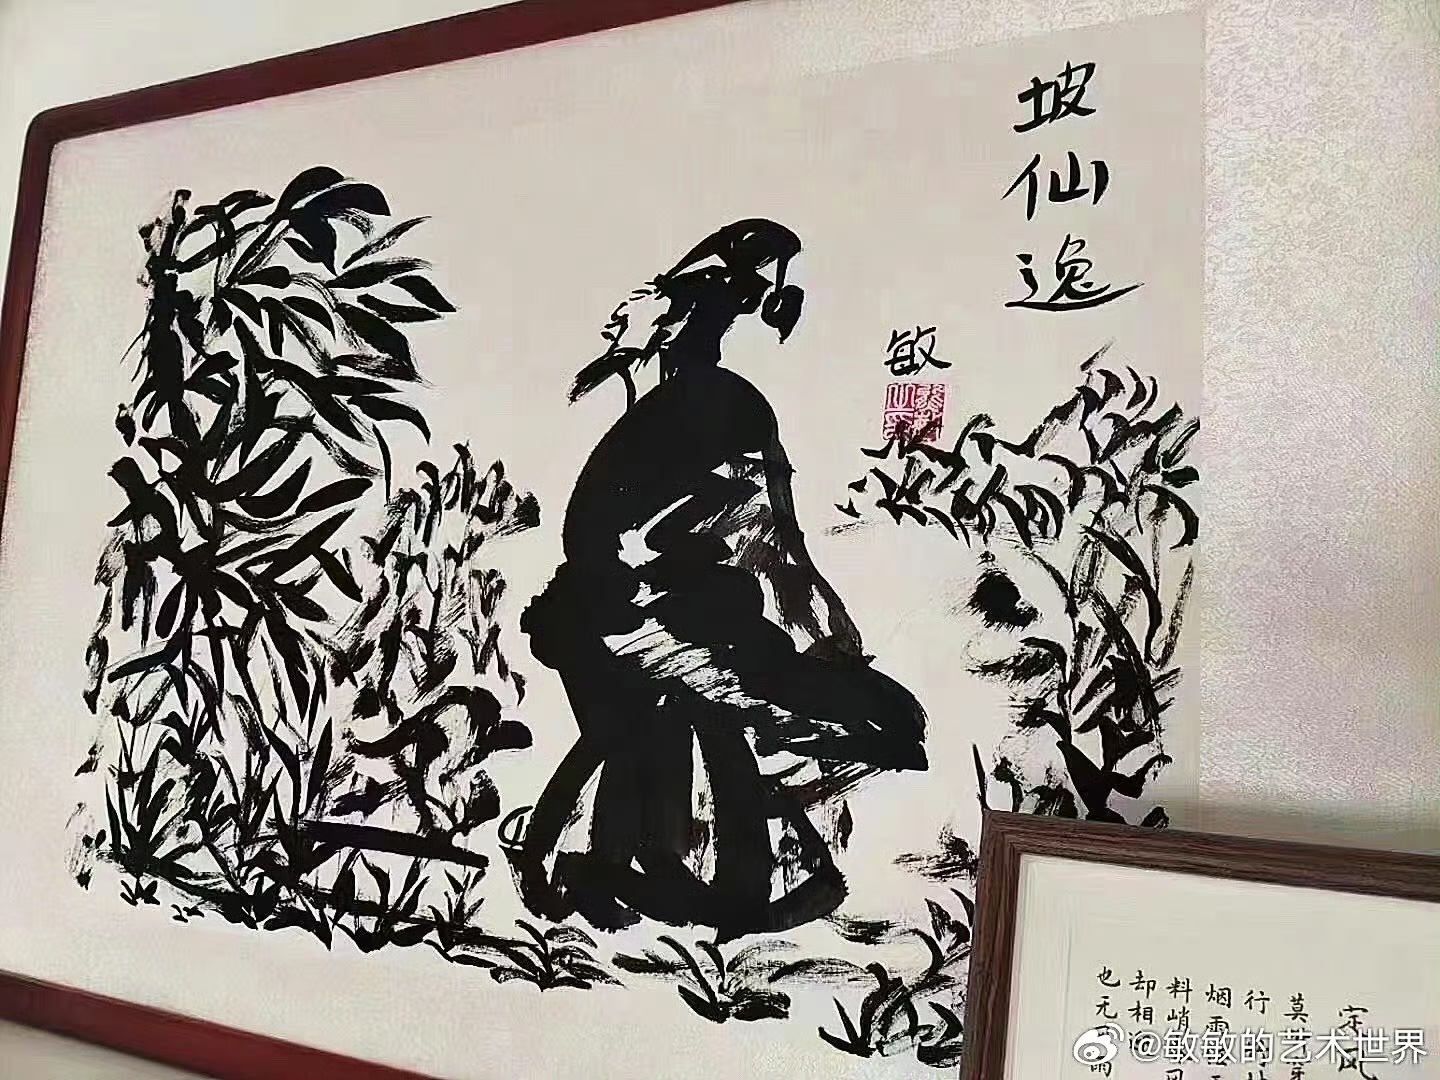 坡仙逸
敏
定风
莫
行
烟雨
料峭
却相
也无风雨
@敏敏的艺术世界